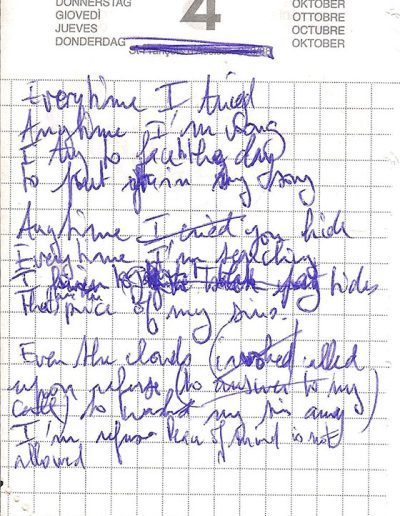 DONNERSTAG
GIOVEDÌ
JUEVES
DONDERDAG
4
OKTOBER
OTTOBRE
OCTUBRE
OKTOBER
Everytime I tried
Anytime I'm wrong
I try to face the day
to put in my song
Anytime I cried you hide
Everytime I'm searching
I hides
The price of my sins.
Even the clouds (invoked) called
upon refuse (to answer to my
call) to wash my sin away)
I'm refuse of mind is not
allowed